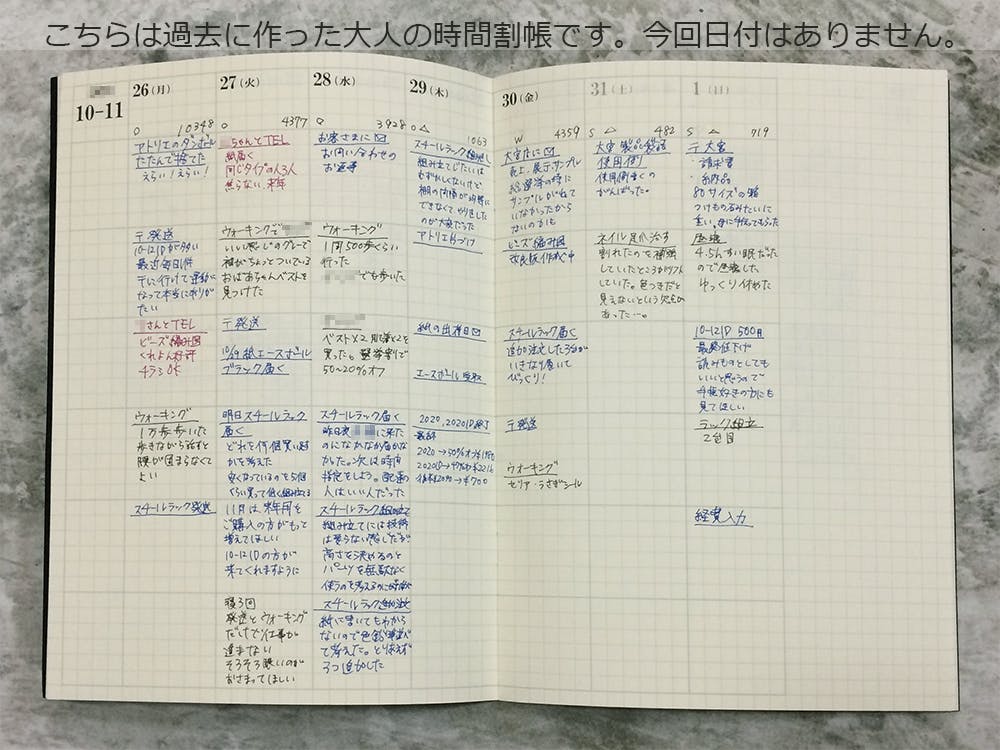 こちらは過去に作った大人の時間割帳です。今回日付はありません。
10-11
26(月)
10348
アトリエのダンボール
たたんで捨てた
えらい!えらい!
〒発送
最近毎日行
たい
さんとTEL
ビーズ編み図
くれよん好評
4ラ3 OK
ウォーキング
1万歩歩いた
歩きながら話すと
腰が固まらなくて
よい
スチールラック発送
27(火)
4377
ちゃんとTEL
紙届く
同じタイプの人3人
焦らない、来年
ウォーキングで
いい感じのグレーで
柄がちょっとついている
おばあちゃんベストを
見つけた
〒発送
10/29 紙エースボール
ブラック届く
明日スチールラック
届く
どれを何個買い足す
かを考えた
11月は、来年用を
ご購入の方がもって
増えてほしい
10-12IDの方が
来てくれますように
寝3回
発送とウォーキング
だけで仕事が
進まない
そろそろ眠いのが
おさまってほしい
28(水)
3928
お客さまに✉
お問い合わせの
お返事
ウォーキング
1周500歩くらい
行った
でも歩いた
買った。選挙割で
50~20%オフ
スチールラック届く
昨日夜 に来た
のになかなか届かな
かった。次は時間
指定をしよう。配達の
人はいい人だった
スチールラック組み立て
組み立てには技術
は要らない感じだが
高さを決めるのと
パーツを無駄なく
スチールラック追加注文
紙に書いてもわから
ないので色鉛筆並べ
て考えた。とりあえず
3つ追加した
29(木)
1063
スチールラック組み立て
組み立てじたいは
むずかしくないけど
棚の間隔が均等に
できなくて、やり直した
のが大変だった
アトリエ片づけ
紙の出荷日✉
エースボール 受取
2020,2020ID終了
2020→50%オフ
→¥700
30(金)
W 4359
大宮さんに✉
売上、展示サンプル
総選挙の時に
サンプルが出て
いなかったから
ないのかも
ビーズ編み図
改良版作成中
スチールラック届く
追加注文した3台が
いきなり届いて
びっくり!
〒発送
ウォーキング
セリア・うさぎシール
31(土)
482
大宮 製品発送
使用例
使用例書くの
がんばった。
ネイル足爪治す
割れたのを補強
していたところがリフト
していた。色つきだと
見えないという欠点が
あった…。
1(日)
719
〒大宮
・請求書
・納品
80サイズの箱
つけものみたいに
重い。母に手伝ってもらった
昼寝
4.5hすい眠だった
ので昼寝した
ゆっくり休めた
10-12ID 500円
最終値下げ
読みものとしても
いいと思うので
手帳好きの方にも
見てほしい
ラック組立
2台目
経費入力